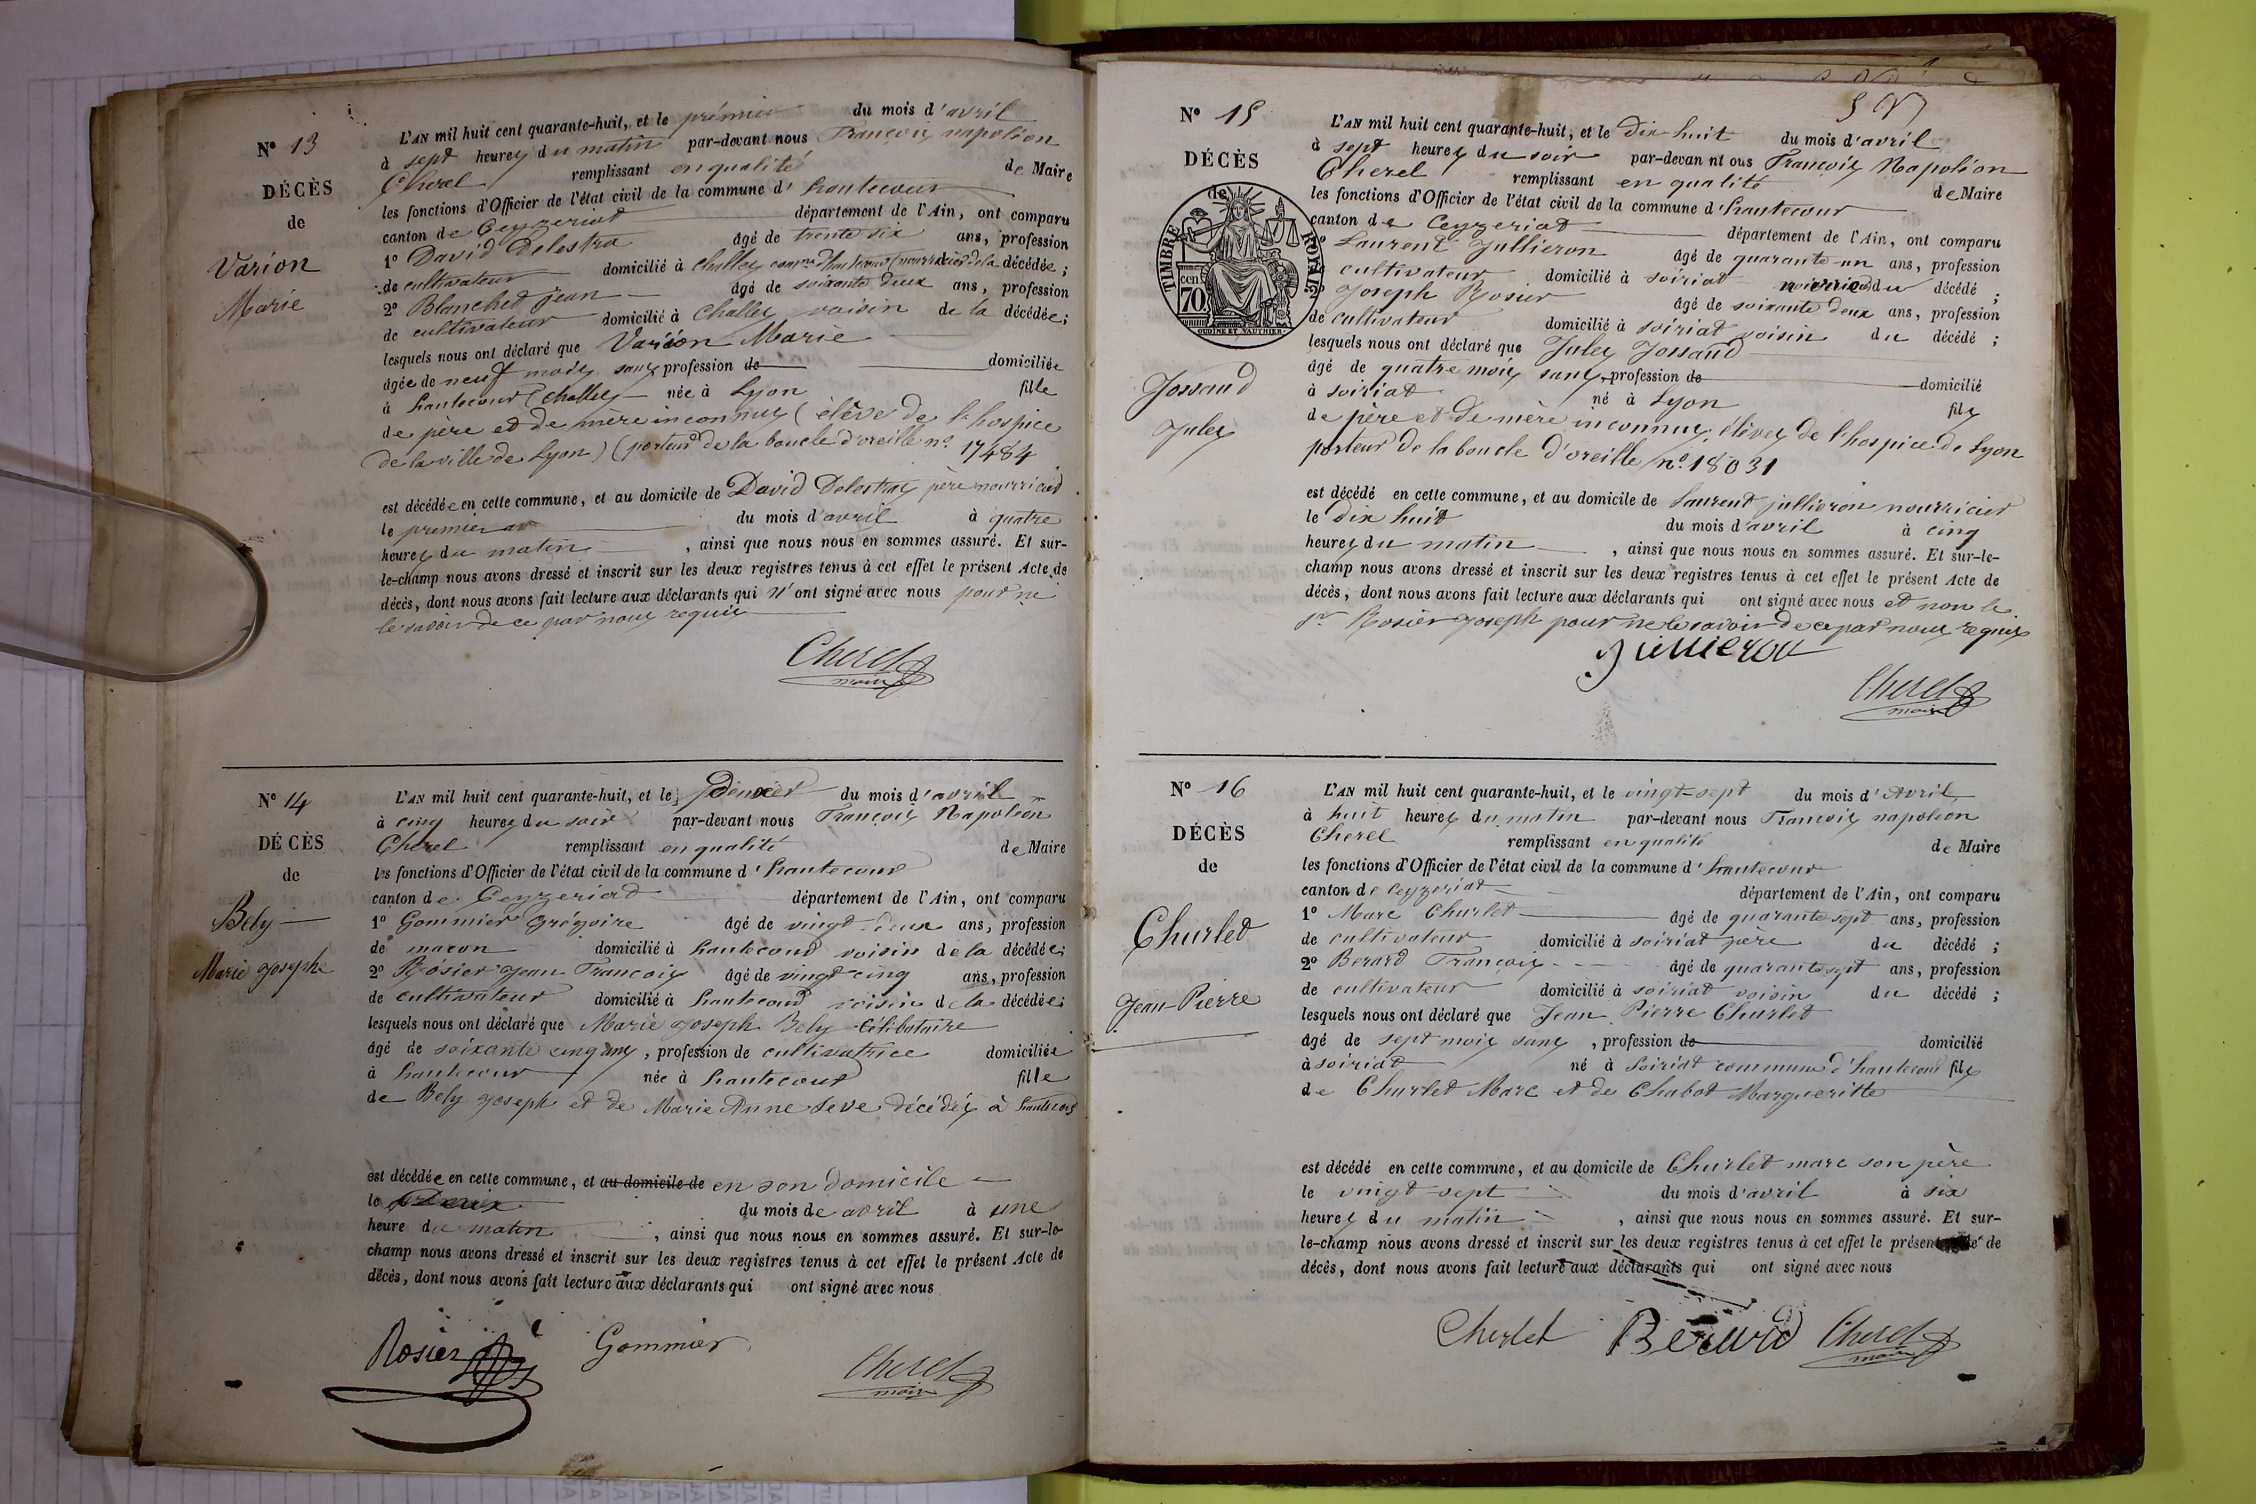 N° 13
DÉCÈS
de
Varion
Marie
L'AN mil huit cent quarante-huit, et le prémier du mois d'avril
à sept heures du matin par-devant nous François napoléon
Cherel remplissant en qualité de Maire
les fonctions d'Officier de l'état civil de la commune d'hautecour
canton de Ceyzeriat département de l'Ain, ont comparu
1° David Delestra âgé de trente six ans, profession
de cultivateur domicilié à Challey comne d'hautecour nourricier de la décédée;
2° Blanchet jean âgé de soixante deux ans, profession
de cultivateur domicilié à Challey voisin de la décédée;
lesquels nous ont déclaré que Varion Marie
âgée de neuf mois, sans profession de domiciliée
à hautecour (Challey née à Lyon fille
de père et de mère inconnus (élève de l'hospice
de la ville de Lyon) (porteur de la boucle d'oreille n° 17484
est décédée en cette commune, et au domicile de David Delestras père nourricier
le premier av du mois d'avril à quatre
heures du matin, ainsi que nous nous en sommes assuré. Et sur-
le-champ nous avons dressé et inscrit sur les deux registres tenus à cet effet le présent Acte de
décès, dont nous avons fait lecture aux déclarants qui n'ont signé avec nous pour ne
le savoir de ce par nous requis
Cherel
maire
N° 14
DÉCÈS
de
Bely
Marie Josephe
L'AN mil huit cent quarante-huit, et le du mois d'avril
à cinq heures du soir par-devant nous François Napoléon
Cherel remplissant en qualité de Maire
les fonctions d'Officier de l'état civil de la commune d'hautecour
canton de Ceyzeriat département de l'Ain, ont comparu
1° Gommier Grégoire âgé de vingt-deux ans, profession
de macon domicilié à hautecour voisin de la décédée;
2° Rosier Jean François âgé de vingt cinq ans, profession
de cultivateur domicilié à hautecour voisin de la décédée;
lesquels nous ont déclaré que Marie Joseph Bely Célibataire
âgé de soixante cinq ans, profession de cultivatrice domiciliée
à hautecour née à hautecour fille
de Bely Joseph et de Marie Anne Seve décédés à hautecour
est décédée en cette commune, et au domicile de en son domicile
le deux du mois de avril à une
heure du matin, ainsi que nous nous en sommes assuré. Et sur-le-
champ nous avons dressé et inscrit sur les deux registres tenus à cet effet le présent Acte de
décès, dont nous avons fait lecture aux déclarants qui ont signé avec nous
Rosier Gommier Cherel
maire
N° 15
DÉCÈS
de
TIMBRE ROYAL
70 cen
OUDINÉ ET VAUTHIER
Jossaud
Jules
L'AN mil huit cent quarante-huit, et le dix huit du mois d'avril
à sept heures du soir par-devan nt ous François Napoléon
Cherel remplissant en qualité de Maire
les fonctions d'Officier de l'état civil de la commune d'hautecour
canton de Ceyzeriat département de l'Ain, ont comparu
Laurent Jullieron âgé de quarante-un ans, profession
cultivateur domicilié à soiriat nourricier du décédé;
Joseph Rosier âgé de soixante deux ans, profession
de cultivateur domicilié à soiriat voisin du décédé;
lesquels nous ont déclaré que Jules Jossaud
âgé de quatre mois sans, profession de domicilié
à soiriat né à Lyon fils
de père et de mère inconnus, élèves de l'hospice de Lyon
porteur de la boucle d'oreille n° 18031
est décédé en cette commune, et au domicile de Laurent jullieron nourricier
le dix huit du mois d'avril à cinq
heures du matin, ainsi que nous nous en sommes assuré. Et sur-le-
champ nous avons dressé et inscrit sur les deux registres tenus à cet effet le présent Acte de
décès, dont nous avons fait lecture aux déclarants qui ont signé avec nous et non le
sr Rosier Joseph pour ne le savoir de ce par nous requis
Jullieron
Cherel
maire
N° 16
DÉCÈS
de
Churlet
Jean-Pierre
L'AN mil huit cent quarante-huit, et le vingt-sept du mois d'Avril
à huit heures du matin par-devant nous François napoléon
Cherel remplissant en qualité de Maire
les fonctions d'Officier de l'état civil de la commune d'hautecour
canton de Ceyzeriat département de l'Ain, ont comparu
1° Marc Churlet âgé de quarante sept ans, profession
de cultivateur domicilié à soiriat père du décédé;
2° Berard François âgé de quarante sept ans, profession
de cultivateur domicilié à soiriat voisin du décédé;
lesquels nous ont déclaré que Jean Pierre Churlet
âgé de sept mois sans, profession de domicilié
à soiriat né à Soiriat commune d'hautecour fils
de Churlet Marc et de Chabot Margueritte
est décédé en cette commune, et au domicile de Churlet marc son père
le vingt sept du mois d'avril à six
heures du matin, ainsi que nous nous en sommes assuré. Et sur-
le-champ nous avons dressé et inscrit sur les deux registres tenus à cet effet le présent de
décès, dont nous avons fait lecture aux déclarants qui ont signé avec nous
Churlet Berard Cherel
maire